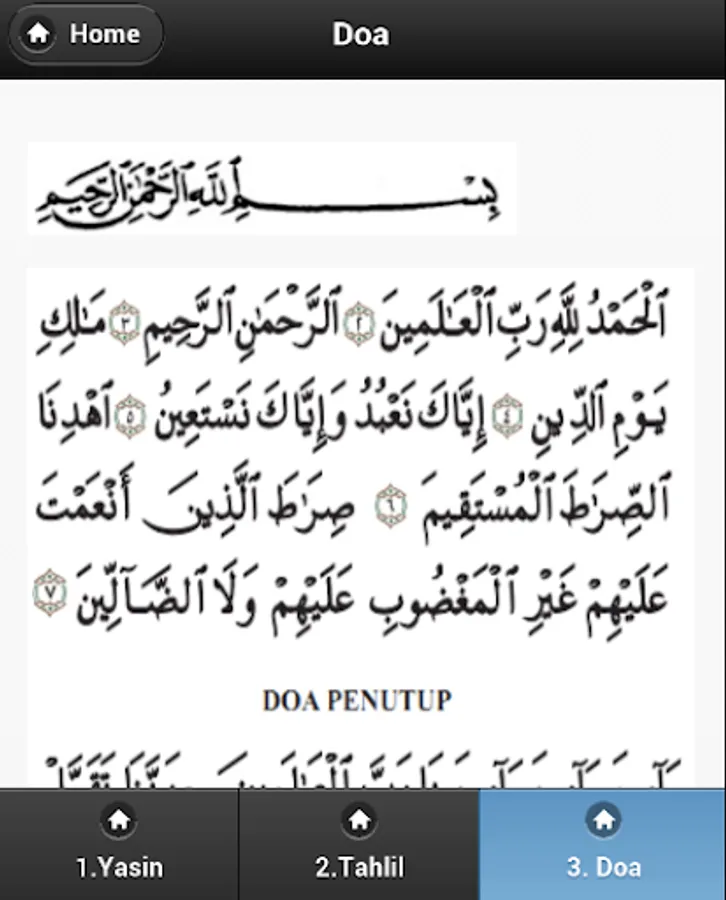 Home
Doa
بِسْمِ ٱللَّهِ ٱلرَّحْمَٰنِ ٱلرَّحِيمِ
ٱلْحَمْدُ لِلَّهِ رَبِّ ٱلْعَـٰلَمِينَ ٢ ٱلرَّحْمَـٰنِ ٱلرَّحِيمِ ٣ مَـٰلِكِ
يَوْمِ ٱلدِّينِ ٤ إِيَّاكَ نَعْبُدُ وَإِيَّاكَ نَسْتَعِينُ ٥ ٱهْدِنَا
ٱلصِّرَٰطَ ٱلْمُسْتَقِيمَ ٦ صِرَٰطَ ٱلَّذِينَ أَنْعَمْتَ
عَلَيْهِمْ غَيْرِ ٱلْمَغْضُوبِ عَلَيْهِمْ وَلَا ٱلضَّآلِّينَ ٧
DOA PENUTUP
1.Yasin
2.Tahlil
3. Doa